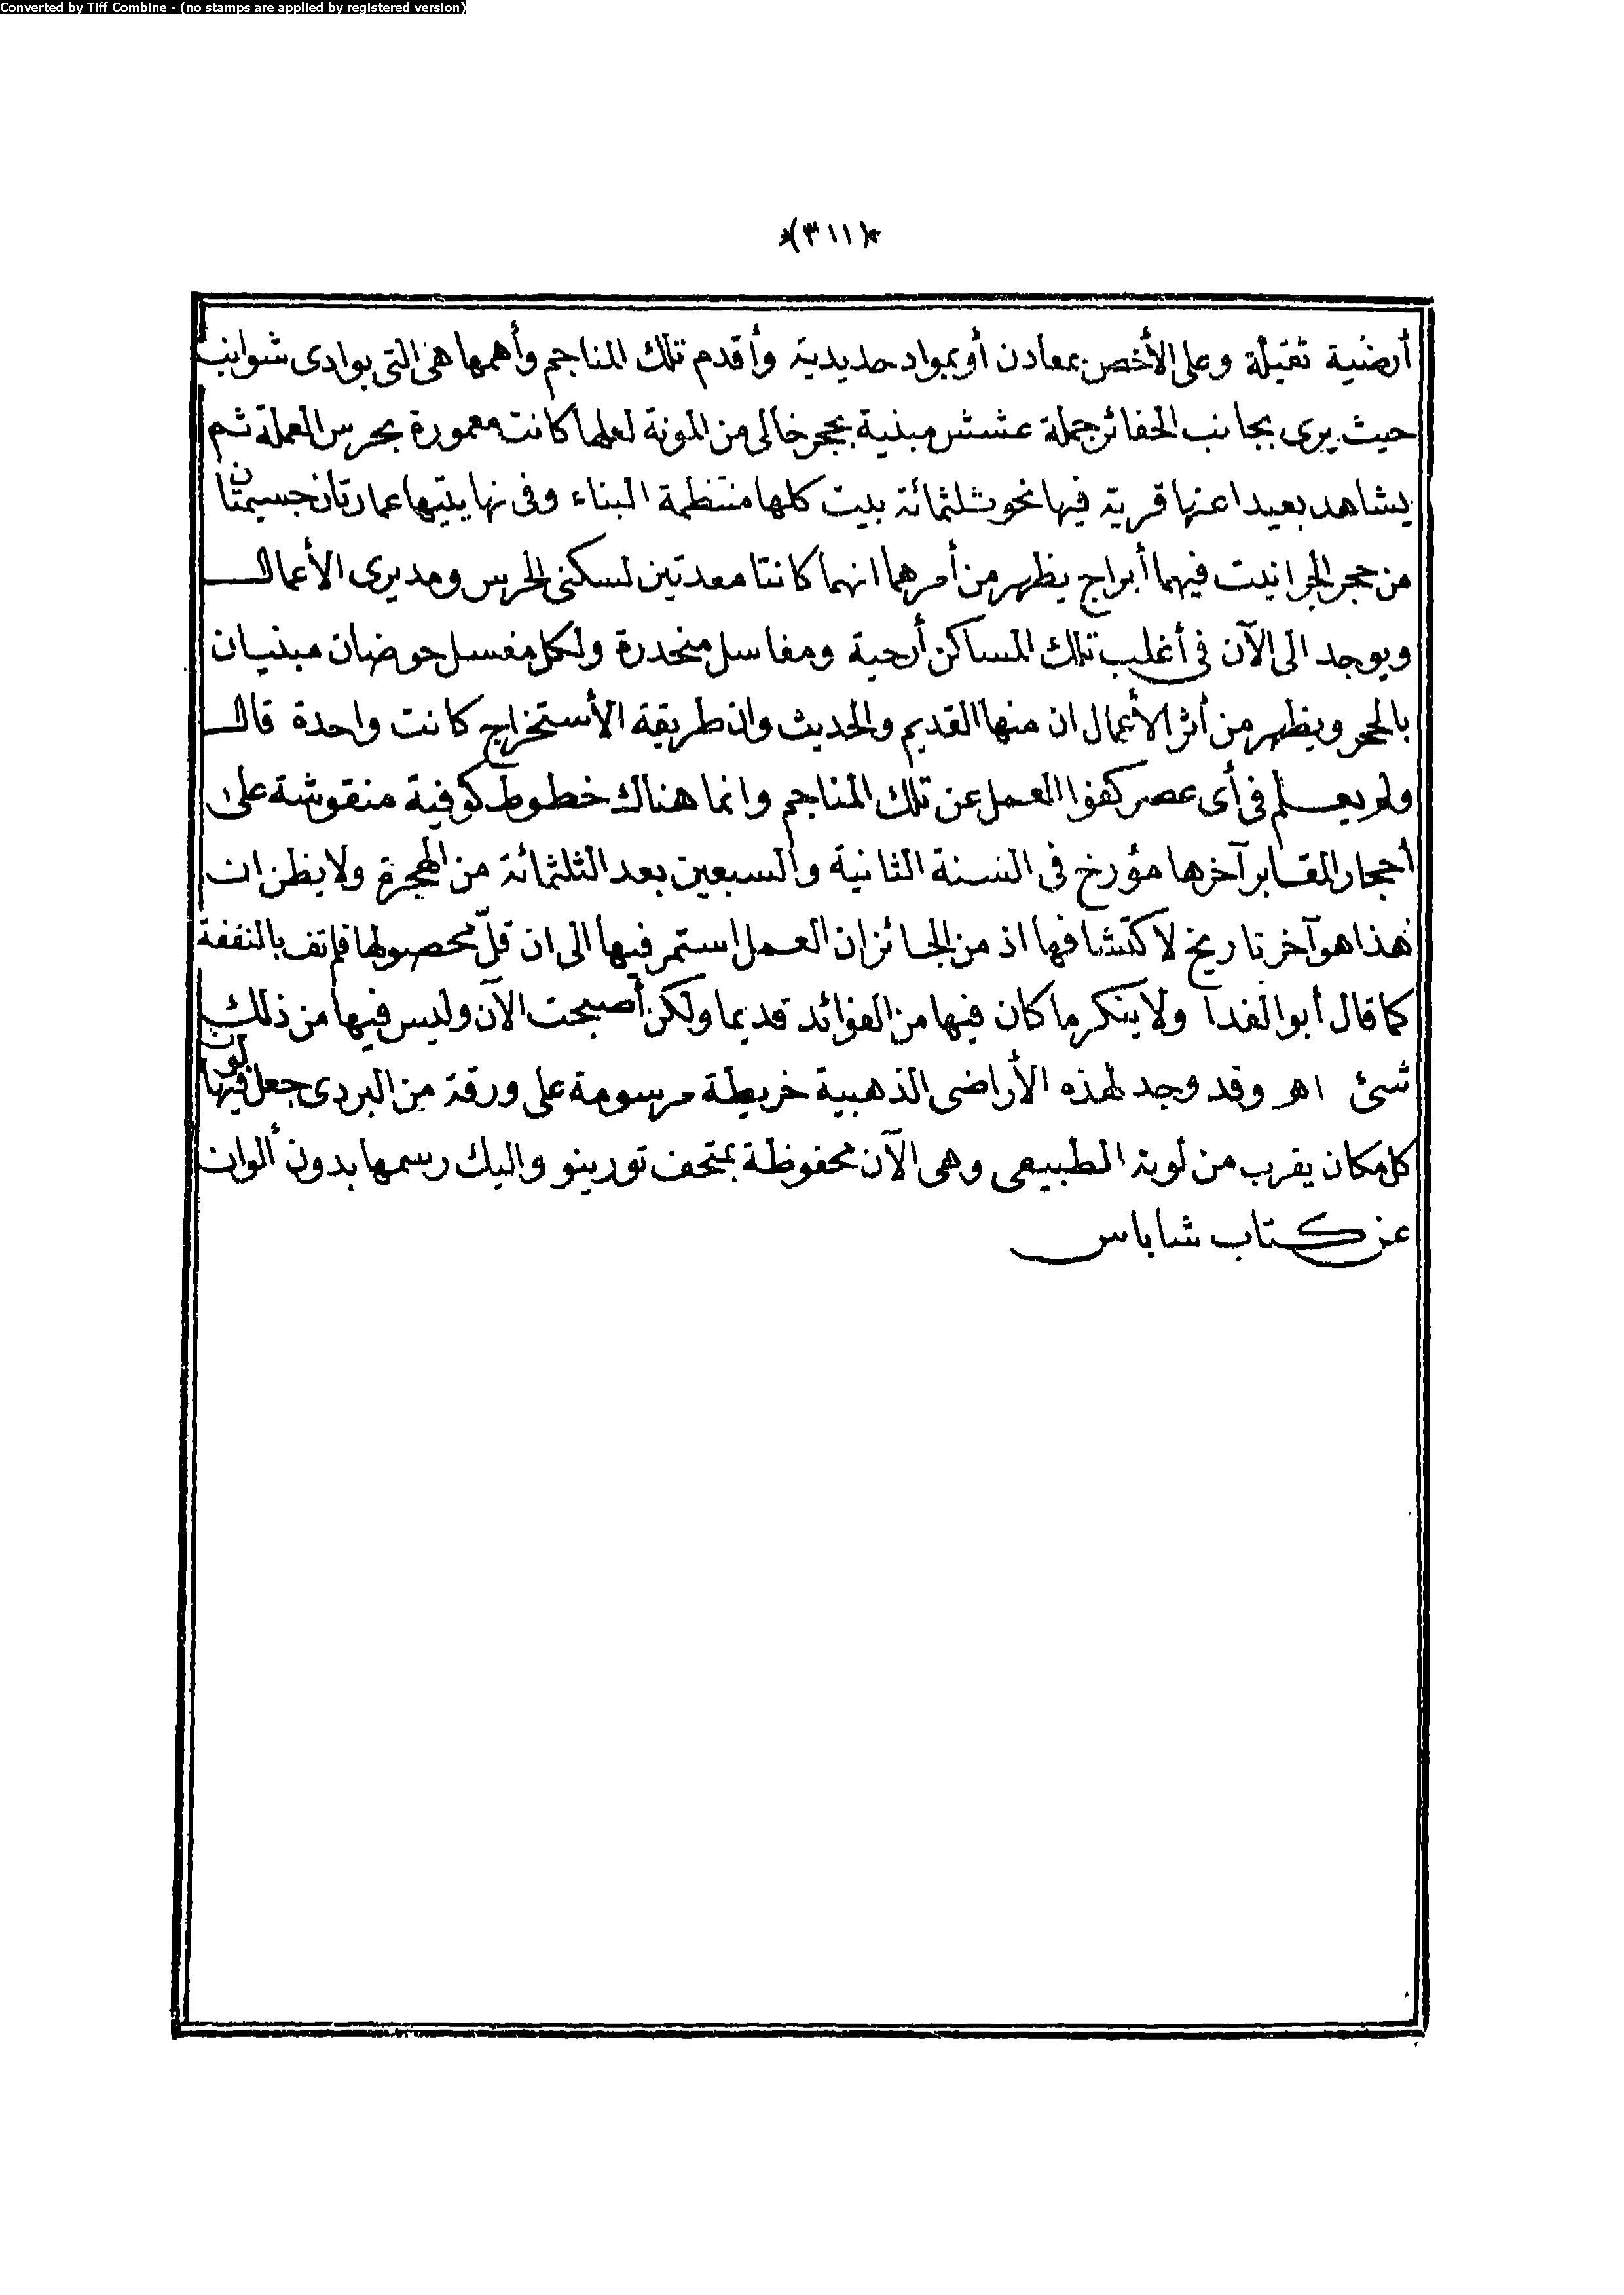 Converted by Tiff Combine - (no stamps are applied by registered version)
*(٣١١)*
أرضية ثقيلة وعلى الأخص بمعادن أو بمواد حديدية وأقدم تلك المناجم وأهمها هى التى بوادى شوانب
حيث يرى بجانب الحفائر جملة عشش مبنية بحجر خالى من المونة لعلها كانت معمورة بحرس العملة ثم
يشاهد بعيدا عنها قرية فيها نحو ثلثمائة بيت كلها منتظمة البناء وفى نهايتها عمارتان جسيمتان
من حجر الجرانيت فيهما أبراج يظهر من أمرهما انهما كانتا معدتين لسكنى الحرس ومديرى الأعمال
ويوجد الى الآن فى أغلب تلك المساكن أرحية ومغاسل منحدرة ولكل مغسل حوضان مبنيان
بالحجر ويظهر من أثر الأعمال ان منها القديم والحديث وان طريقة الأستخراج كانت واحدة قال
ولم يعلم فى أى عصر كفوا العمل عن تلك المناجم وانما هناك خطوط كوفية منقوشة على
أحجار المقابر آخرها مؤرخ فى السنة الثانية والسبعين بعد الثلثمائة من الهجرة ولا يظن ان
هذا هو آخر تاريخ لاكتشافها اذ من الجائز ان العمل استمر فيها الى ان قلّ محصولها فلم تف بالنفقة
كما قال أبو الفدا ولا ينكر ما كان فيها من الفوائد قديما ولكن أصبحت الآن وليس فيها من ذلك
شئ اهـ وقد وجد لهذه الأراضى الذهبية خريطة مرسومة على ورقة من البردى جعل فيها لون
كل مكان يقرب من لونه الطبيعى وهى الآن محفوظة بمتحف تورينو واليك رسمها بدون ألوان
عن كتاب شاباس